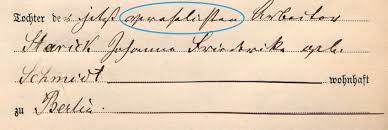 Tochter der jetzt verehelichten Arbeiter
Starick Johanne Friederike geb.
Schmidt wohnhaft
zu Berlin.